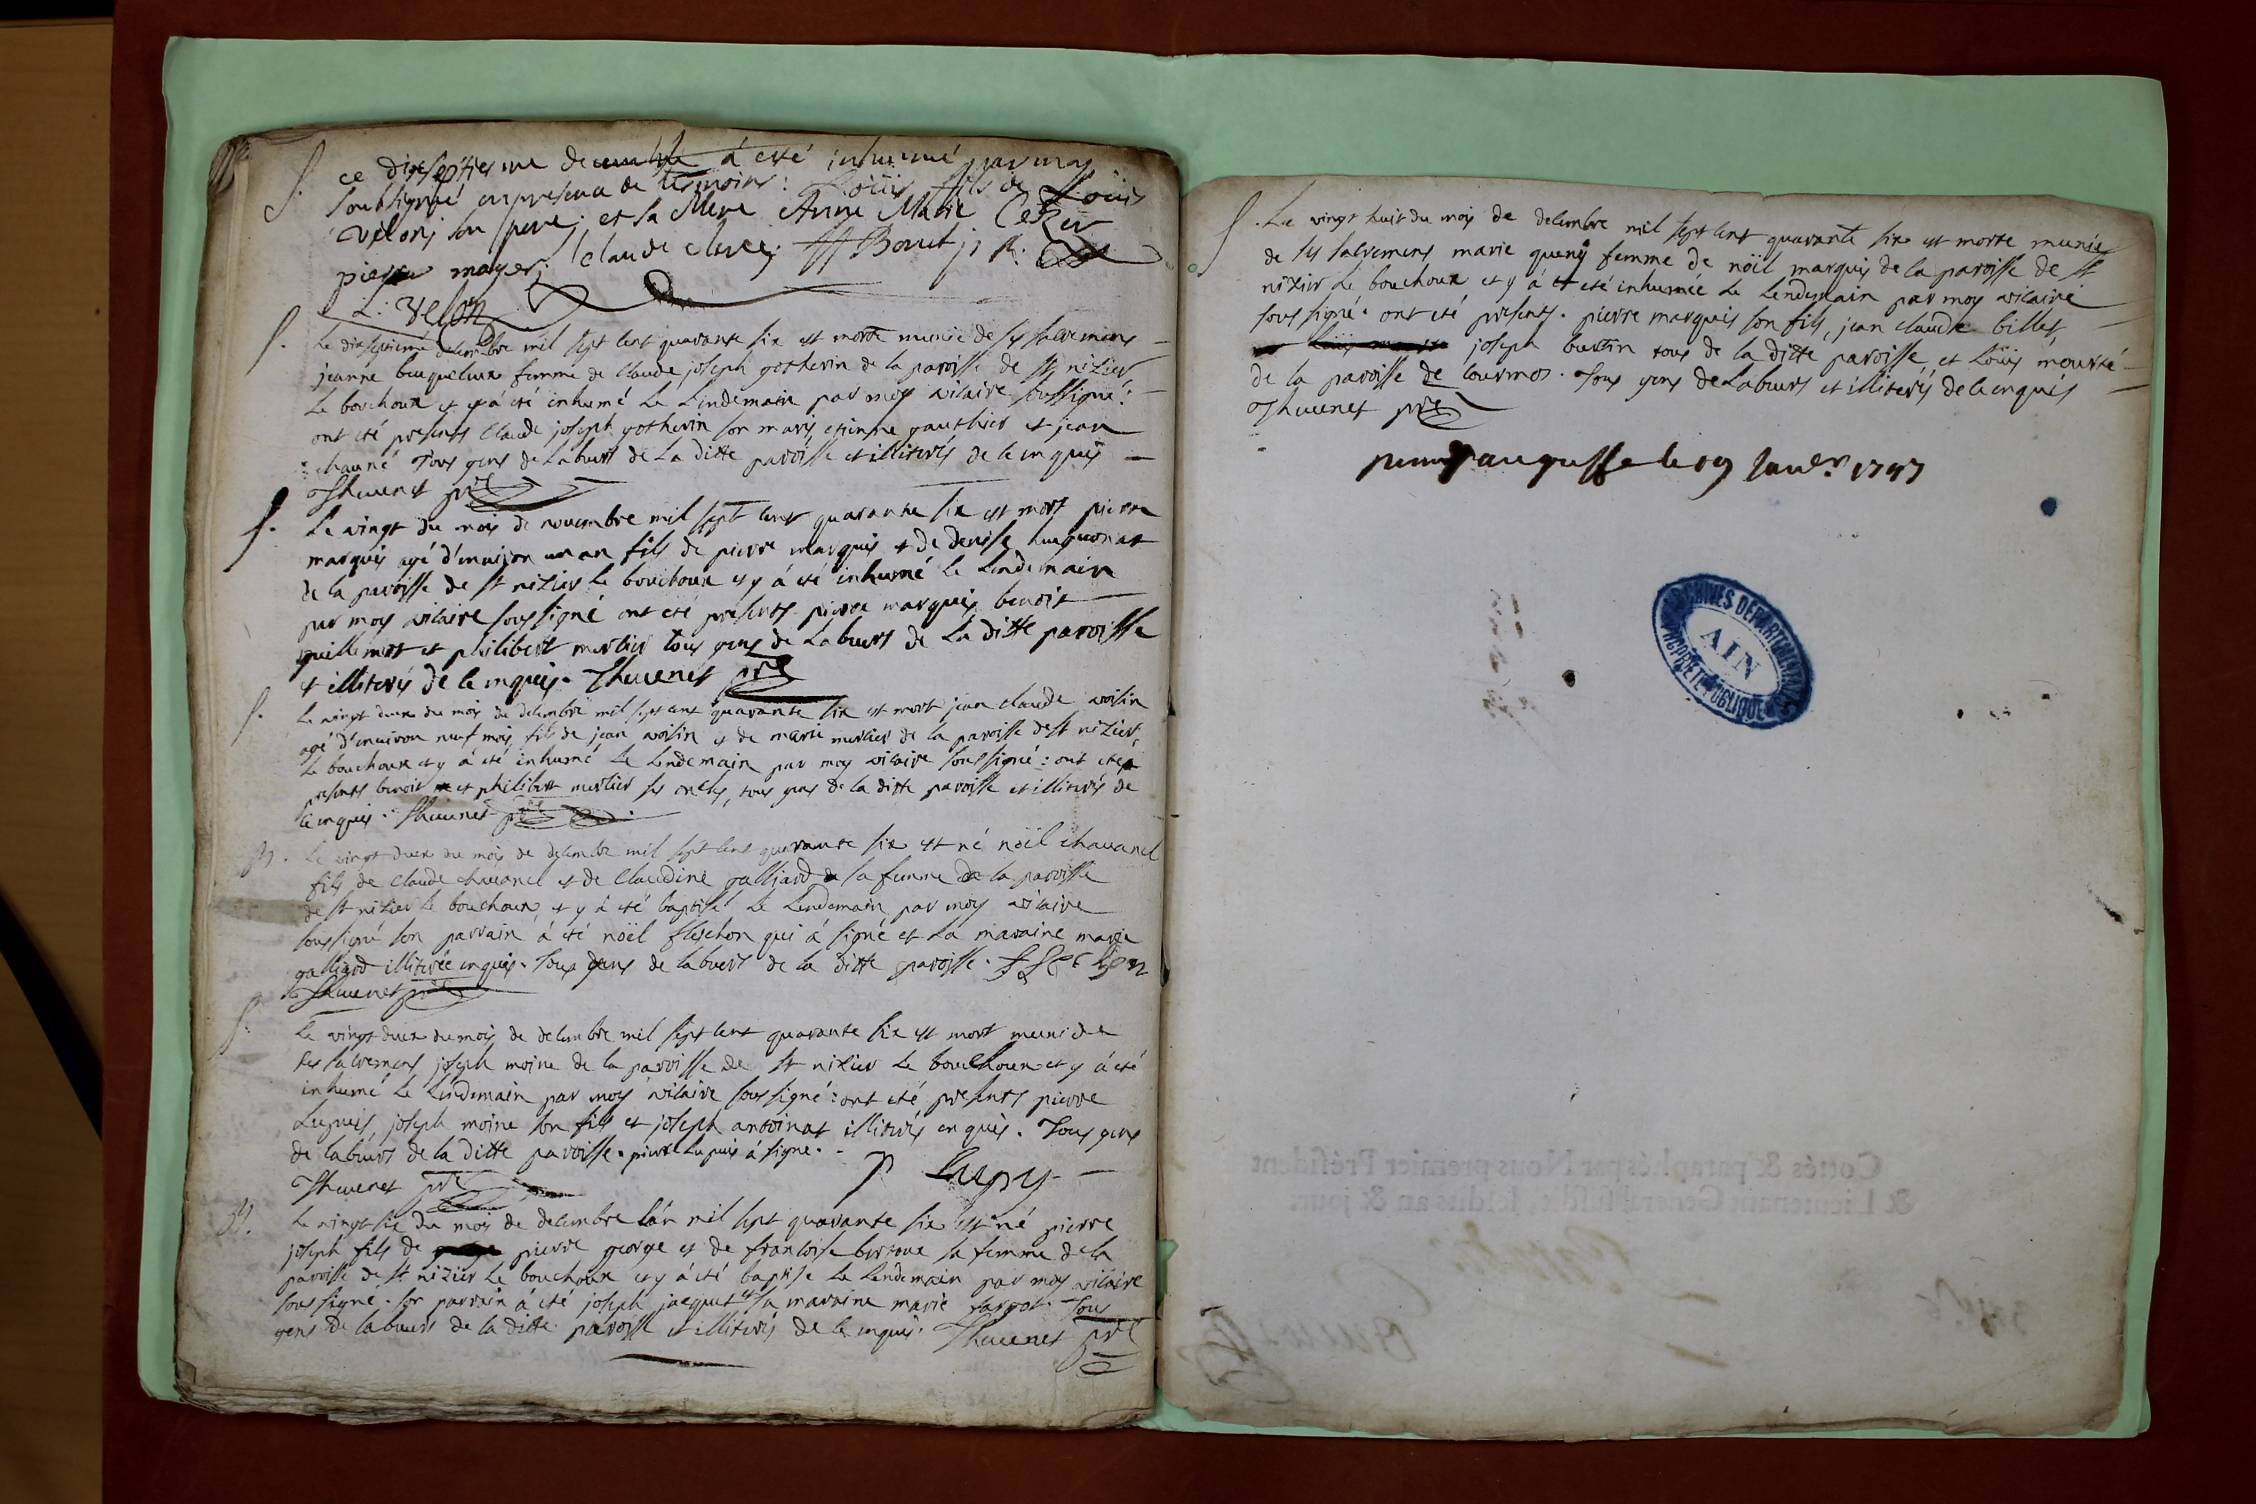 S. ce dixseptiesme decembre á esté inhumé par moy
soubsigné en presence de tesmoins: Loüis fils de Loüis
velon; son pere; et sa Mere Anne Marie
pierre mayer; claude clerc; Borret
L: velon
S. Le dixseptieme decembre mil sept cent quarante six est morte munie de ses sacremens
jeanne femme de claude joseph gotherin de la paroisse de st nizier
Le bouchoux et y á été inhumé Le Lendemain par moy vicaire soussigné:
ont été presents claude joseph gotherin son mary, etienne gauthier et jean
chauné Tous gens de Labeurs de La ditte paroisse et illiterés de ce enquis
Theuenet ptre
S. Le vingt du mois de novembre mil sept cent quarante six est mort pierre
marquis agé d'environ un an fils de pierre marquis et de denise huguonat
de la paroisse de st nizier Le bouchoux et y á été inhumé le Lendemain
par moy vicaire soussigné ont été presents pierre marquis, benoit
guillemot et philibert mercier tous gens de Labeurs de La ditte paroisse
et illiterés de ce enquis. Theuenet ptre
S. Le vingt deux du mois de decembre mil sept cent quarante six est mort jean claude voisin
agé d'environ neuf mois, fils de jean voisin et de marie mercier de la paroisse de st nizier,
Le bouchoux et y á été inhumé Le Lendemain par moy vicaire soussigné: ont été
presents benoit et philibert mercier ses oncles, tous gens de la ditte paroisse et illiterés de
ce enquis. Theuenet ptre
N. Le vingt deux du mois de decembre mil sept cent quarante six est né noël chavanel
fils de claude chavanel et de claudine galliard sa femme de la paroisse
de st nizier le bouchoux, et y á été baptisé Le Lendemain par moy vicaire
soussigné son parrain á été noël flechon qui á signé et La maraine marie
galliard illiterée enquis. Tous gens de labeurs de la ditte paroisse. flechon
Theuenet ptre
S. Le vingt deux du mois de decembre mil sept cent quarante six est mort muni de
ses sacremens joseph moine de la paroisse de st nizier Le bouchoux et y á été
inhumé Le Lendemain par moy vicaire soussigné: ont été presents pierre
Lupuis, joseph moine son fils et joseph antoinat illiterés enquis. Tous gens
de labeurs de la ditte paroisse. pierre Lupuis á signé.
P Lupuy
Theuenet ptre
N. Le vingt six du mois de decembre l'an mil sept quarante six est né pierre
joseph fils de pierre george et de francoise sa femme de la
paroisse de st nizier Le bouchoux et y á été baptisé Le Lendemain par moy vicaire
soussigné. son parrain á été joseph jacquet et sa maraine marie fargot. Tous
gens de labeurs de la ditte paroisse et illiterés de ce enquis. Theuenet ptre
S. Le vingt huit du mois de decembre mil sept cent quarante six est morte munie
de ses sacremens marie queny femme de noël marquis de la paroisse de st
nizier Le bouchoux et y á été inhumée Le Lendemain par moy vicaire
soussigné. ont été presents. pierre marquis son fils, jean claude billet,
joseph burtin tous de la ditte paroisse, et Loüis mourté
de la paroisse de courmos. Tous gens de Labeurs et illiterés de ce enquis
Theuenet ptre
le 19 Janer. 1747
ARCHIVES DEPARTEMENTALES
AIN
PROPRIETE PUBLIQUE
Cottés & paraphés par Nous premier Président
& Lieutenant Général susdit, lesdits an & jour.